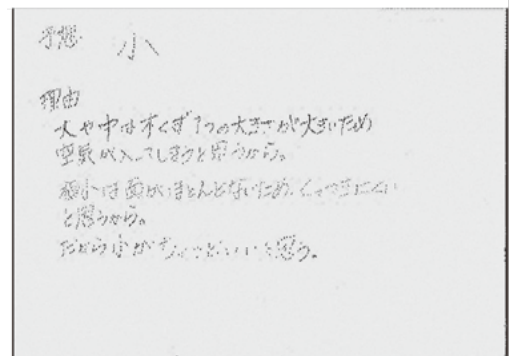 予想 小
理由
大や中は木くず1つの大きさが大きいため
空気が入ってしまうと思うから。
極小は面がほとんどないため、くっつきにくい
と思うから。
だから小がちょうどいいと思う。